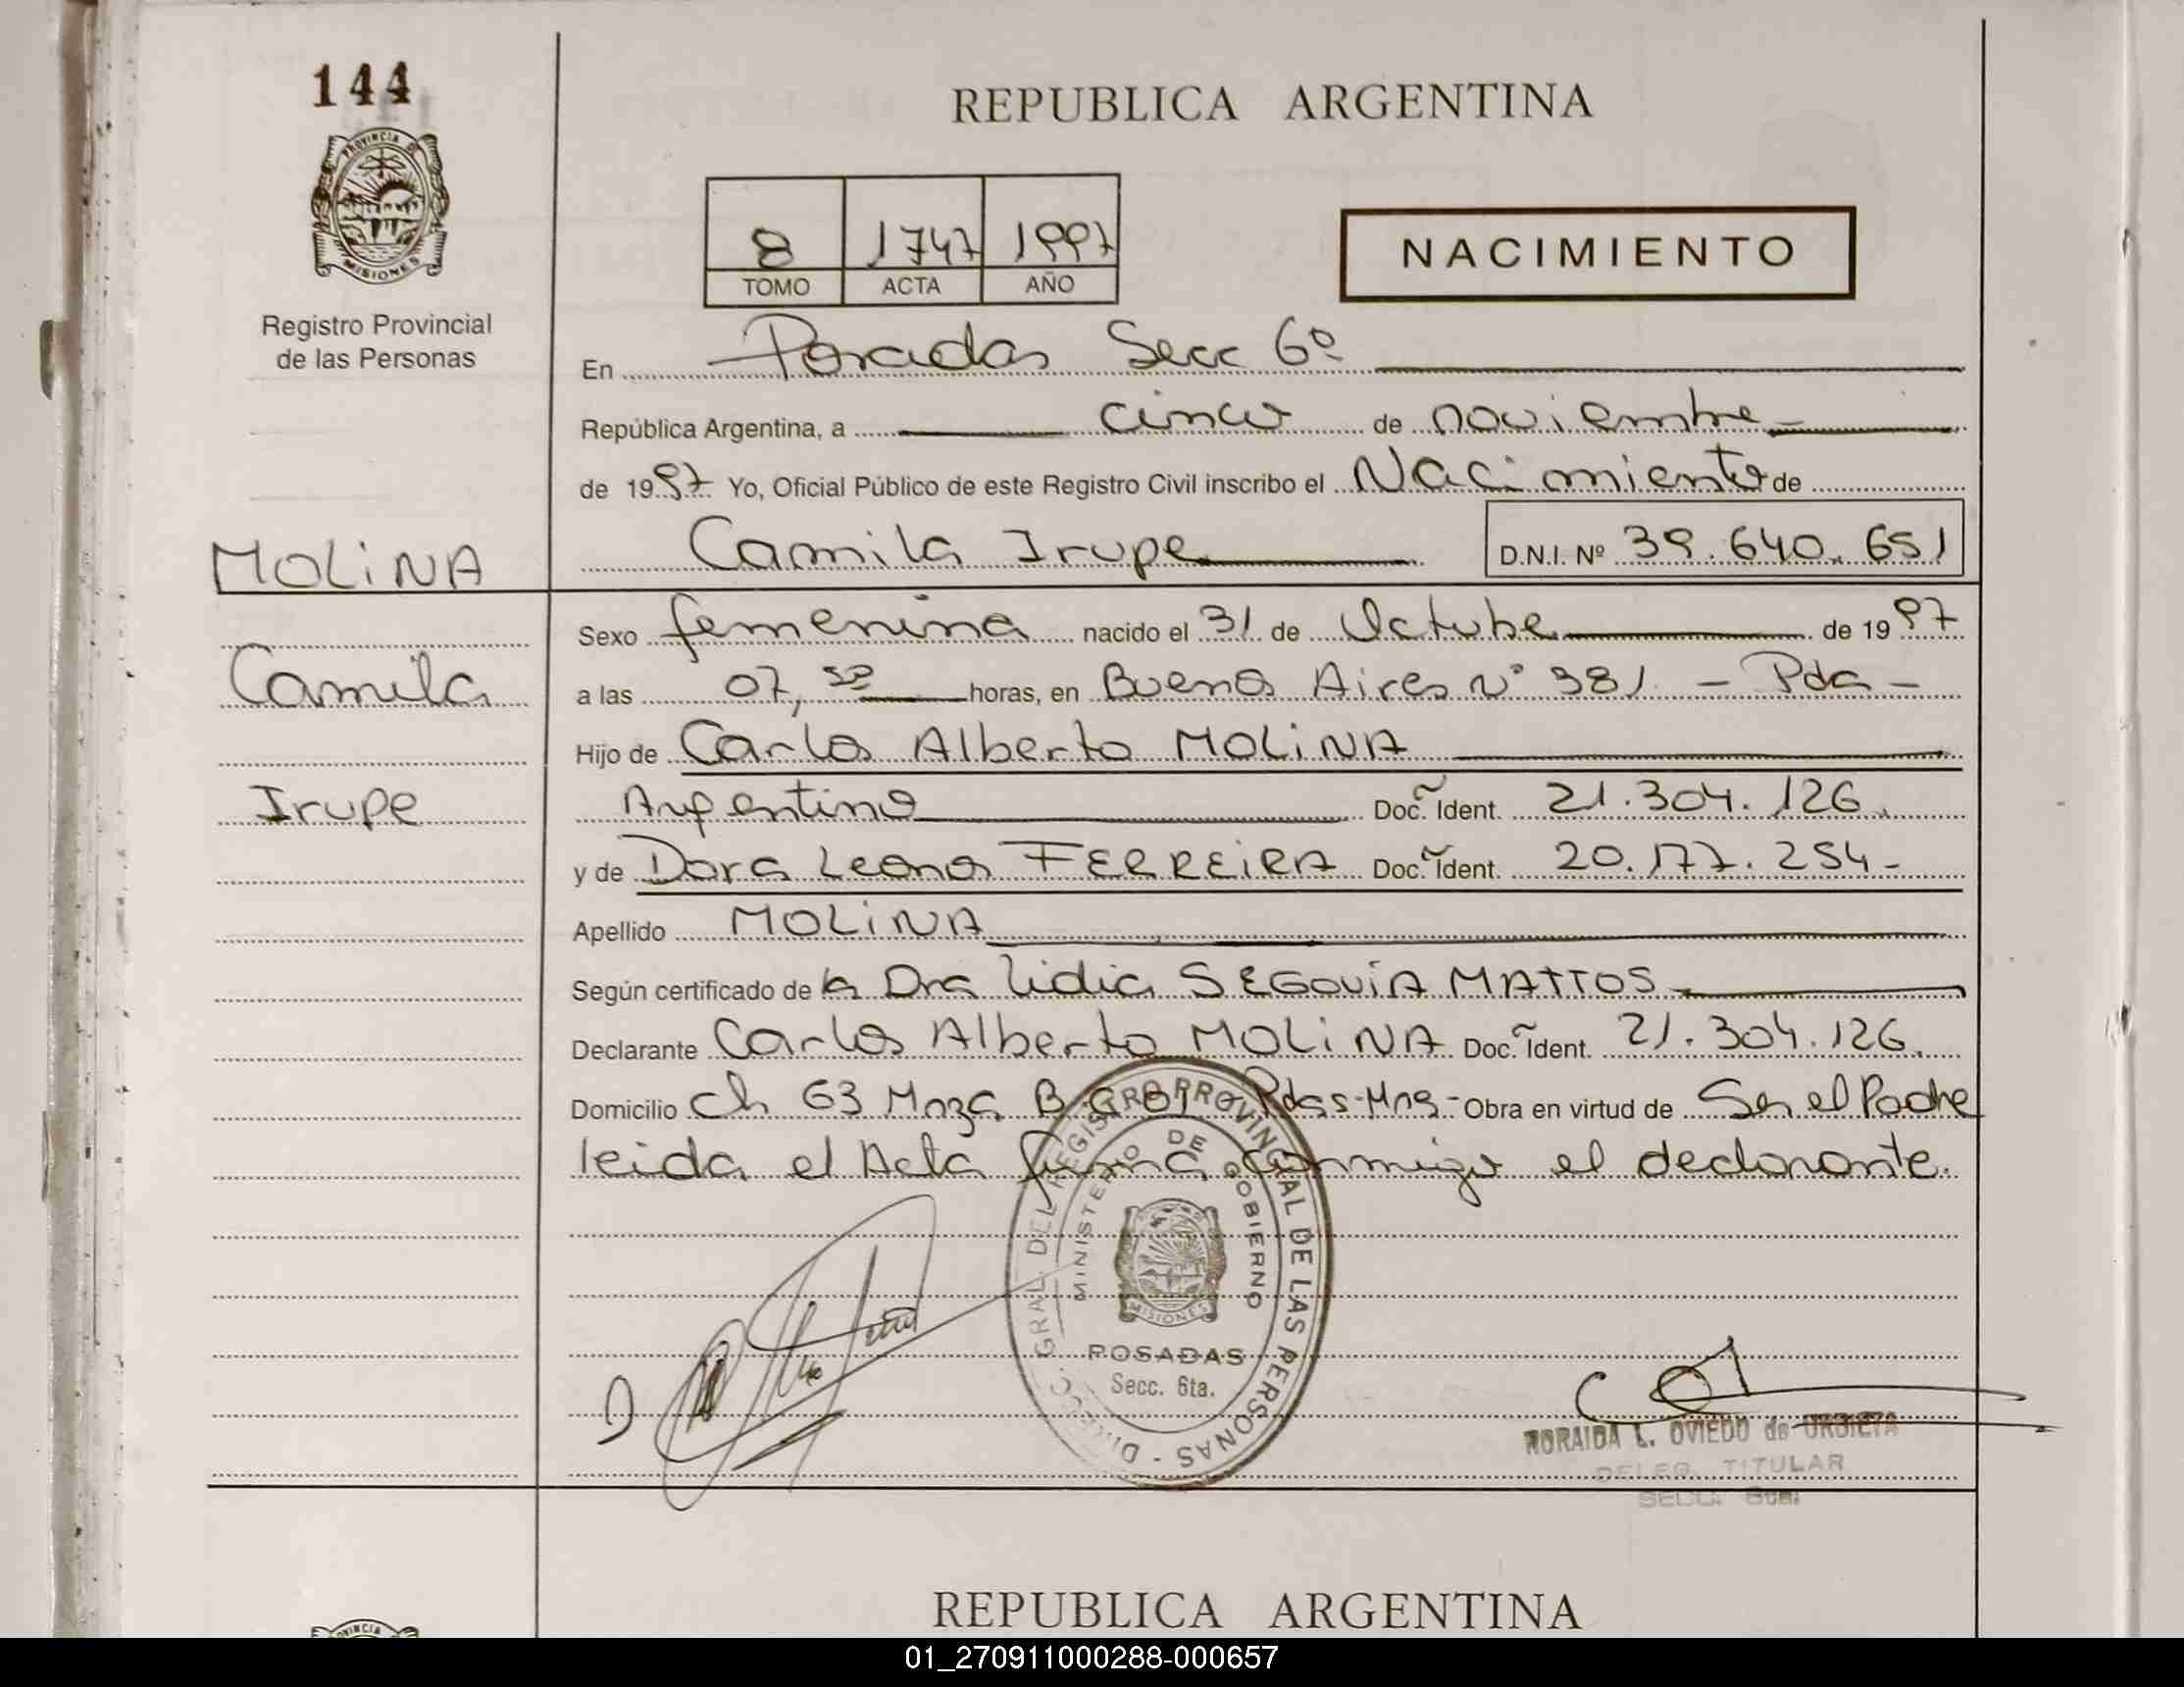 144
PROVINCIA DE
MISIONES
Registro Provincial
de las Personas
MOLiNA
Camila
Irupe
REPUBLICA ARGENTINA
8 1747 1997
TOMO ACTA AÑO
NACIMIENTO
En Posadas Secc 6º
República Argentina, a cinco de noviembre
de 1997 Yo, Oficial Público de este Registro Civil inscribo el Nacimiento de
Camila Irupe D.N.I. Nº 39.640.651
Sexo femenina nacido el 31 de Octubre de 1997
a las 07, 30 horas, en Buenos Aires Nº 381 - Pdas -
Hijo de Carlos Alberto MOLiNA
Argentino Doc. Ident. 21.304.126.
y de Dora Leonor FERREiRA Doc. Ident. 20.177.254-
Apellido MOLiNA
Según certificado de la Dra Lidia SEGOViA MATTOS
Declarante Carlos Alberto MOLiNA Doc. Ident. 21.304.126.
Domicilio Ch 63 Mnza B Pdas-Mns- Obra en virtud de Ser el Padre
leida el Acta firma conmigo el declarante.
DIRECC. GRAL. DEL REGISTRO PROVINCIAL DE LAS PERSONAS -
MINISTERIO DE GOBIERNO
MISIONES
POSADAS
Secc. 6ta.
NORAIDA L. OVIEDO de URBIETA
DELEG. TITULAR
SECC. 6ta.
REPUBLICA ARGENTINA
01_270911000288-000657